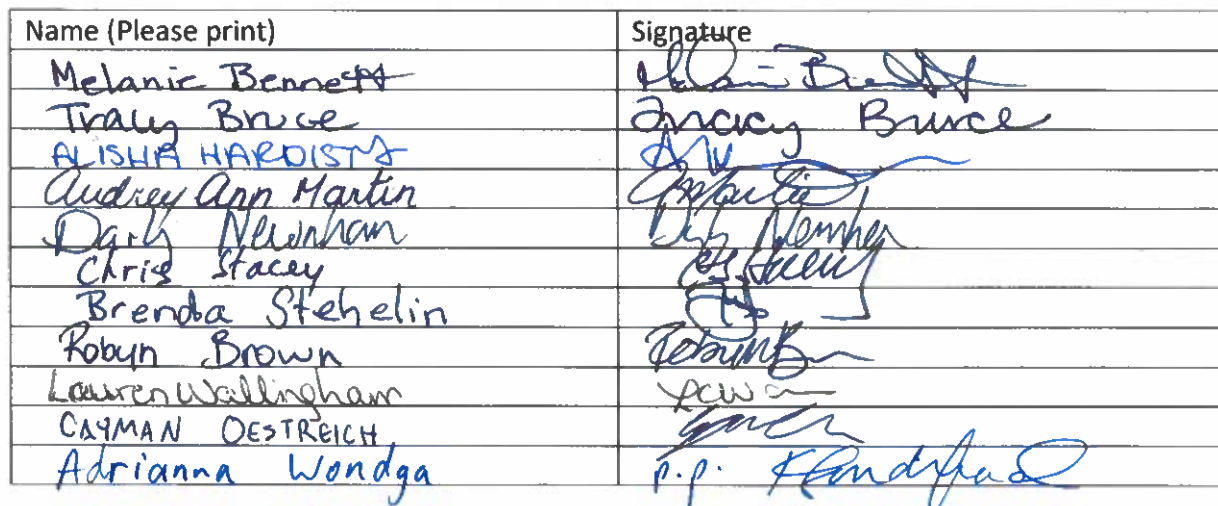 Name (Please print) Signature
Melanie Bennett
Tracy Bruce Tracy Bruce
ALISHA HARDISTY
Audrey Ann Martin Martin
Daryl Newnham
Chris Stacey
Brenda Stehelin
Robyn Brown Robyn
Lauren Wallingham
CAYMAN OESTREICH
Adrianna Wondga p.p.